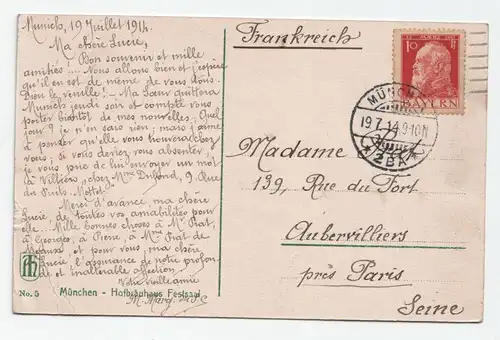 Munich, 19 Juillet 1914.
Ma chère Lucie,
Bon souvenir et mille
amitiés.... Nous allons bien et j'espère
qu'il en est de même de vous tous.
Dieu le veuille! - Ma Sœur quittera
Munich jeudi soir et compte vous
porter bientôt de mes nouvelles; Quel
jour? je n'en sais rien; mais j'aime
à penser que elle vous trouvera chez
vous; si vous deviez vous absenter,
je vous prie de lui envoyer un mot
à Villiers, chez Mme Dubond, 9 Rue
du Puits Mottet
Merci d'avance ma chère
Lucie, de toutes vos amabilités pour
elle. Mille bonnes choses à Mr Prat,
à Georges, à Irène, à Mme Prat de
Meaux et pour vous, ma chère
Lucie, l'assurance de notre profonde
et inaltérable affection.
Votre vieille amie
M. Marg.
No. 5 München - Hofbräuhaus Festsaal
Frankreich
10 Pf
BAYERN
MÜNCHEN
19.7.14.9-10N
* 2 B.A. *
Madame
139, Rue du Fort
Aubervilliers
près Paris
Seine